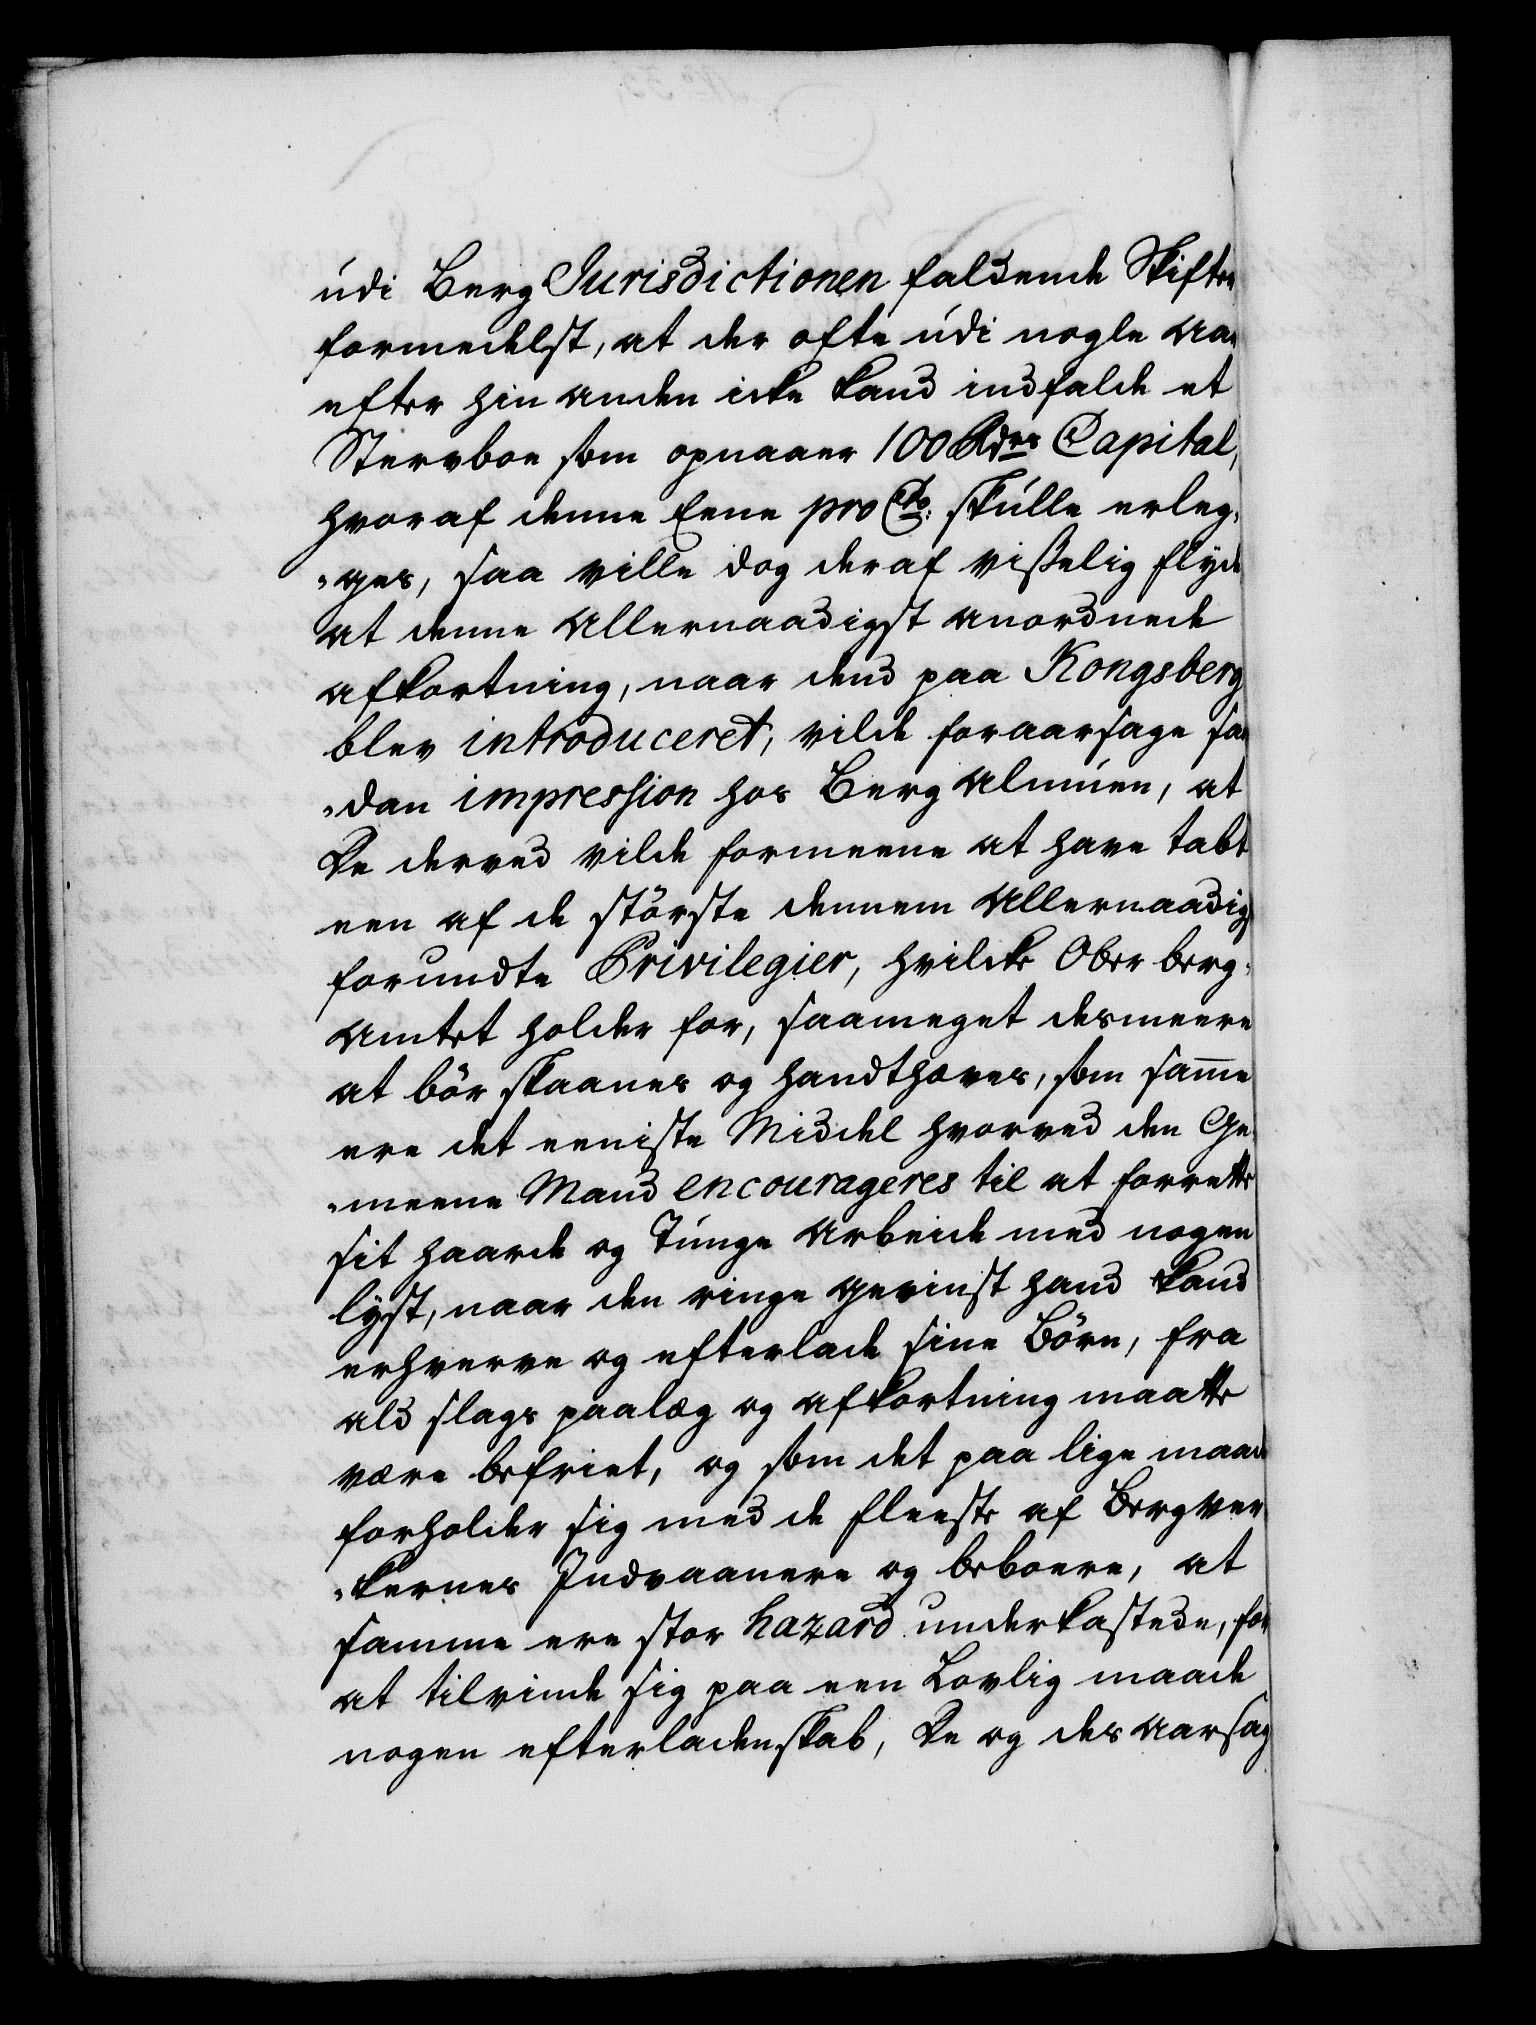 udi Berg Jurisdictionen faldende Skifter
formedelst, at der ofte udi nogle Aar
efter hin anden icke kand indfalde et
Sterboe som opnaaer 100 Rdrs Capital,
hvoraf denne Eene pro Cto: skulle erleg¬
„ges, saa ville dog deraf visselig flyde
at denne Allernaadigst anordnede
afkortning, naar dend paa Kongsberg
blev introduceret, vilde foraarsage saa
„dan impression hos Berg Almuen, at
De derved vilde formeene at have tabt
een af de störste dennem Allernaadigst
forundte Privilegier, hvilcke Ober berg¬
Amtet holder for, saameget desmeere
at bör skaanes og handthæves, som samme
ere det eeniste Middel hvorved den Ge¬
„meene Mand encourageres til at forrette
sit haarde og Tunge Arbeide med nogen
lyst, naar den ringe gevinst hand kand
erhverve og efterlade sine Börn, fra
ald slags paalæg og afkortning maatte
være befriet, og som det paa lige maade
forholder sig med de fleeste af Bergver
„kernes Indvaanere og beboere, at
samme ere stor hazard underkastede, for
at tilvinde sig paa een Lovlig maade
nogen efterladenskab, De og des Aarsag